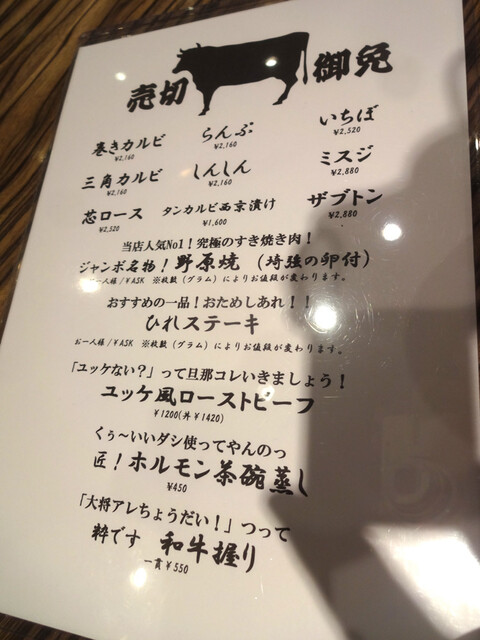 売切 御免
巻きカルビ らんぷ いちぼ
¥2,160 ¥2,160 ¥2,520
三角カルビ しんしん ミスジ
¥2,160 ¥2,160 ¥2,880
芯ロース タンカルビ西京漬け ザブトン
¥2,520 ¥1,600 ¥2,880
当店人気No1！究極のすき焼き肉！
ジャンボ名物！野原焼（埼強の卵付）
お一人様/¥ASK ※枚数（グラム）によりお値段が変わります。
おすすめの一品！おためしあれ！！
ひれステーキ
お一人様/¥ASK ※枚数（グラム）によりお値段が変わります。
「ユッケない？」って旦那コレいきましょう！
ユッケ風ローストビーフ
¥1200(丼¥1420)
くぅ～いいダシ使ってやんのっ
匠！ホルモン茶碗蒸し
¥450
「大将アレちょうだい！」つって
粋です 和牛握り
一貫¥550